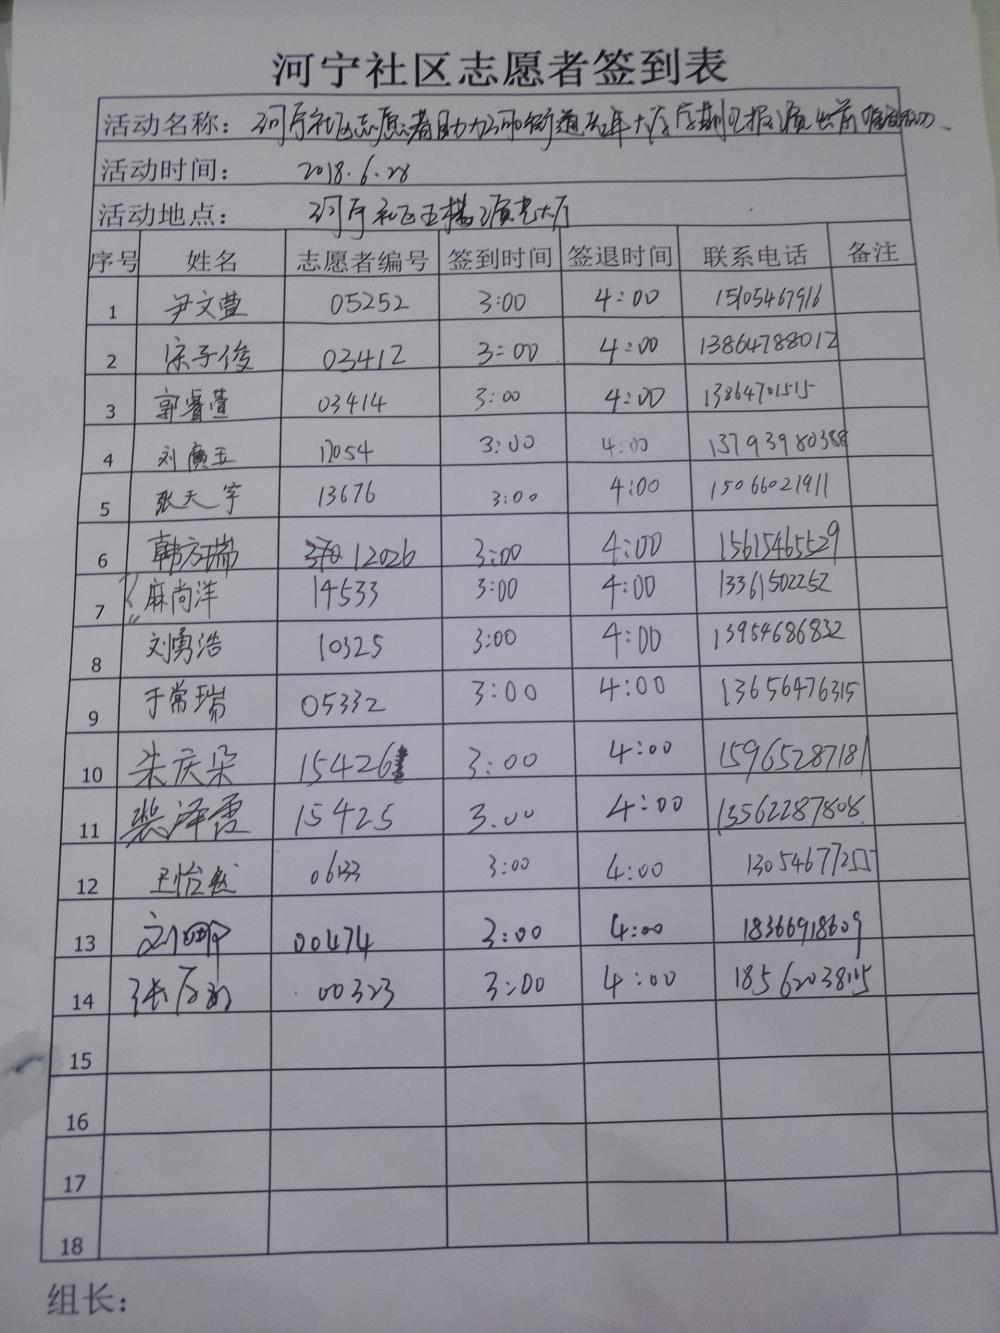 河宁社区志愿者签到表
活动名称：河宁社区志愿者助力 街道老年大学 期汇报演出前
活动时间： 2018.6.28
活动地点： 河宁社区五楼演艺大厅
序号 姓名 志愿者编号 签到时间 签退时间 联系电话 备注
1 尹文萱 05252 3:00 4:00 15105467916
2 宗子俊 03412 3:00 4:00 13864788012
3 郭睿萱 03414 3:00 4:00 13864701515
4 刘广玉 12054 3:00 4:00 13793980388
5 张天宇 13676 3:00 4:00 15066021911
6 韩方瑞 12026 3:00 4:00 15615465529
7 麻尚洋 14533 3:00 4:00 13361502252
8 刘勇浩 10325 3:00 4:00 13954686832
9 于常瑞 05332 3:00 4:00 13656476315
10 朱庆朵 15426 3:00 4:00 15965287181
11 裴泽霞 15425 3.00 4:00 13562287808
12 王怡 3:00 4:00 13054677255
13 刘 00474 3:00 4:00 18366918609
14 张 00323 3:00 4:00
15
16
17
18
组长：